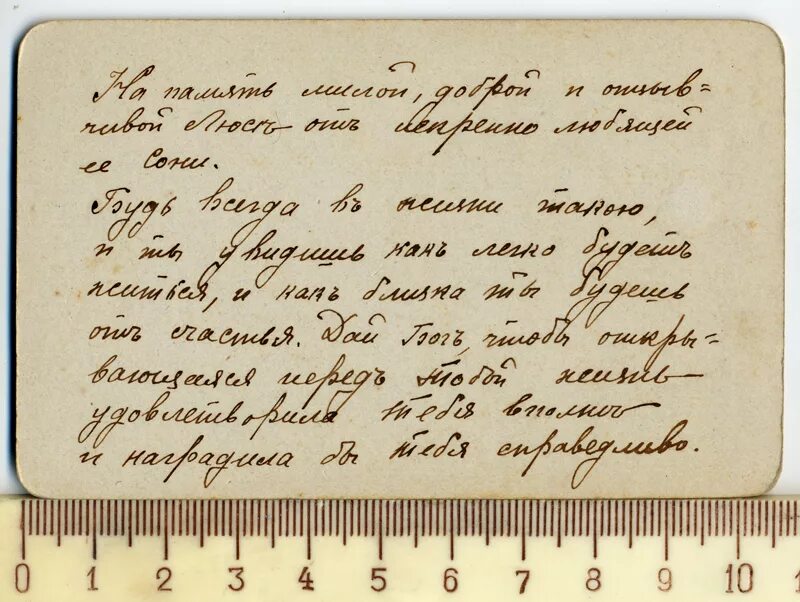 На память милой, доброй и отзыв=
чивой Люсѣ отъ искренно любящей
ее Сони.
Будь всегда въ жизни такою,
и ты увидишь какъ легко будетъ
житься, и какъ близка ты будешь
отъ счастья. Дай Богъ, чтобы откры=
вающаяся передъ тобой жизнь
удовлетворила тебя вполнѣ
и наградила бы тебя справедливо.
0 1 2 3 4 5 6 7 8 9 10